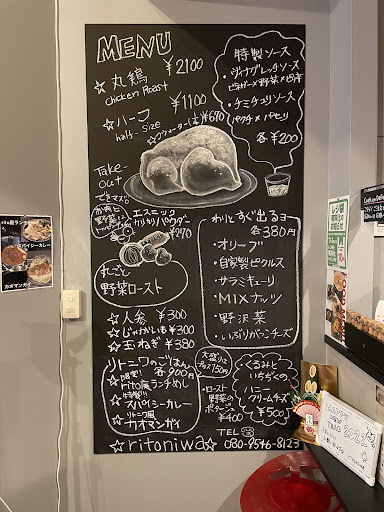 MENU
☆丸鶏 ¥2100
chicken Roast
☆ハーフ ¥1100
half-size
☆クウォーターは¥670
特製ソース
・ヴィナグレッチソース
ビネガー×野菜×
・チミチュリソース
パクチ×パセリ
各¥200
Take-out
できマス
お肉と
野菜に
エスニック
カリカリパウダー
¥270
わりとすぐ出るヨー
各380円
・オリーブ
・自家製ピクルス
・サラミキューリ
・MIXナッツ
・野沢菜
・いぶりがっこチーズ
丸ごと
野菜ロースト
☆人参 ¥300
☆じゃがいも ¥300
☆玉ねぎ ¥380
リトニワのごはん
各900円
限定!
☆rito風ランチめし
特製!!
☆スパイシーカレー
リトニワ風
☆カオマンガイ
大盛りは
プラス150円
・ロースト
野菜の
ポテサラ
¥400
・くるみと
いちぢくの
ハニー
クリームチーズ
¥500
TEL
☆ritoniwa☆ 080-9546-8123
スパイシーカレー
カオマンガイ
HAPPY
NEW
YEAR
2023